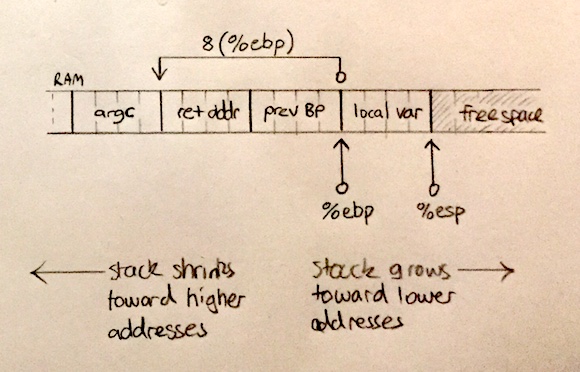 8(%ebp)
RAM
argc
ret addr
prev BP
local var
free space
%ebp
%esp
stack shrinks
toward higher
addresses
stack grows
toward lower
addresses